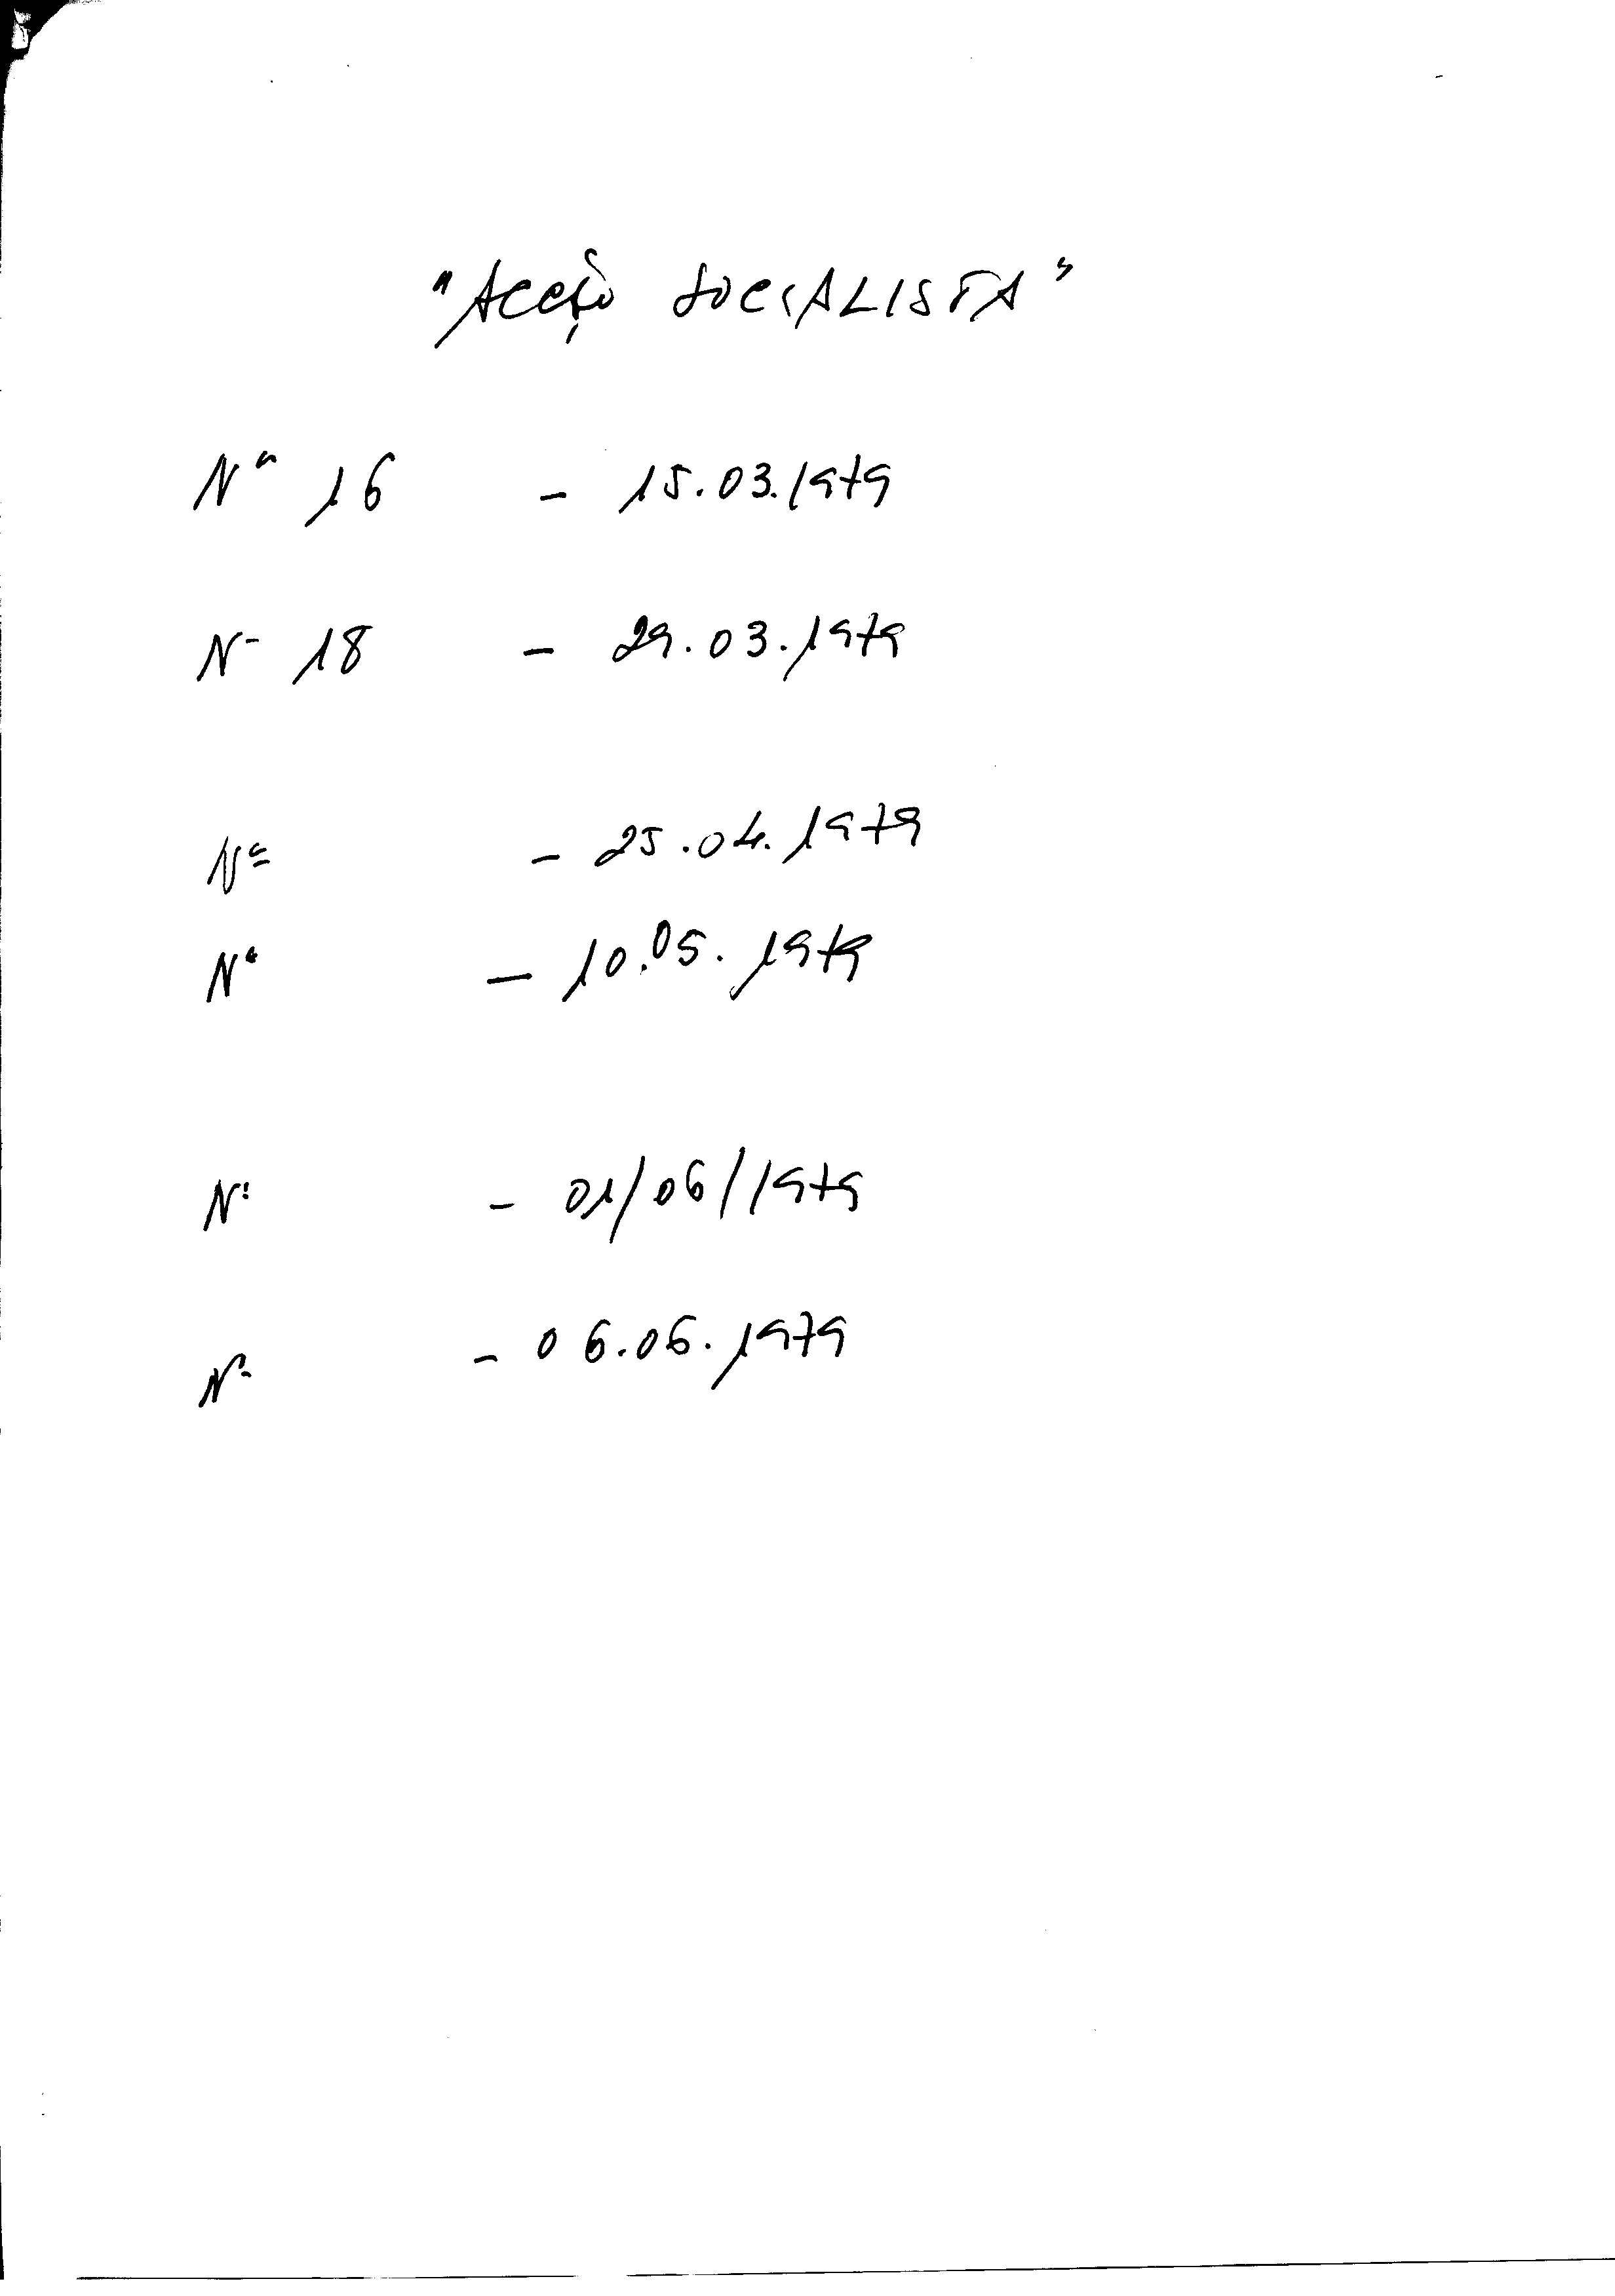 "Acção SOCIALISTA"
Nº 16 - 15.03.1979
Nº 18 - 29.03.1979
Nº - 25.04.1979
Nº - 10.05.1979
Nº - 01/06/1979
Nº - 06.06.1979